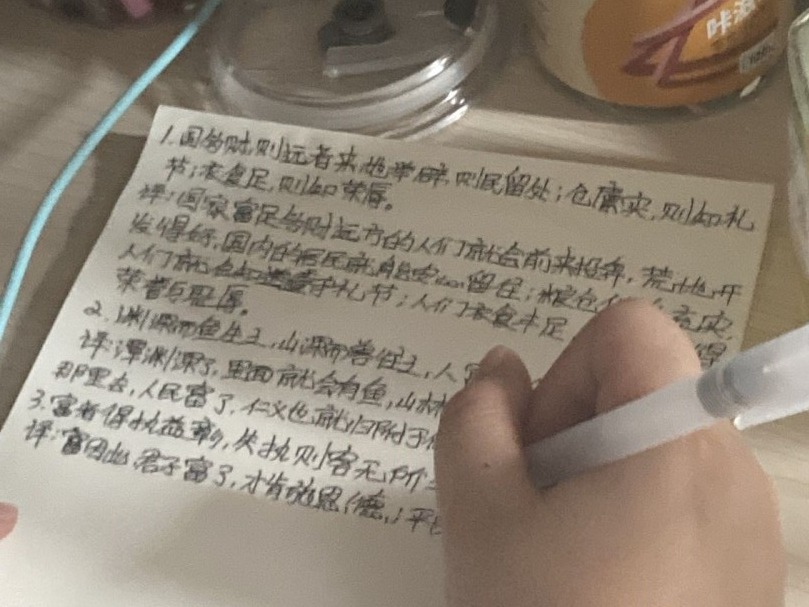 咔滋
1.国多财,则远者来,地举辟,则民留处;仓廪实,则知礼
节;衣食足,则知荣辱。
译:国家富足多财远方的人们就会前来投奔,荒地开
发得好,国内的居民就能安心留住;粮仓
人们就会知道遵守礼节;人们衣食丰足
荣誉与耻辱。
2.渊深而鱼生之,山深而兽往之,人富
译:潭渊深了,里面就会有鱼,山林
那里去,人民富了,仁义也就归附于
3.富者得执益彰,失执则客无所
译:富因此君子富了,才肯施恩德,;平